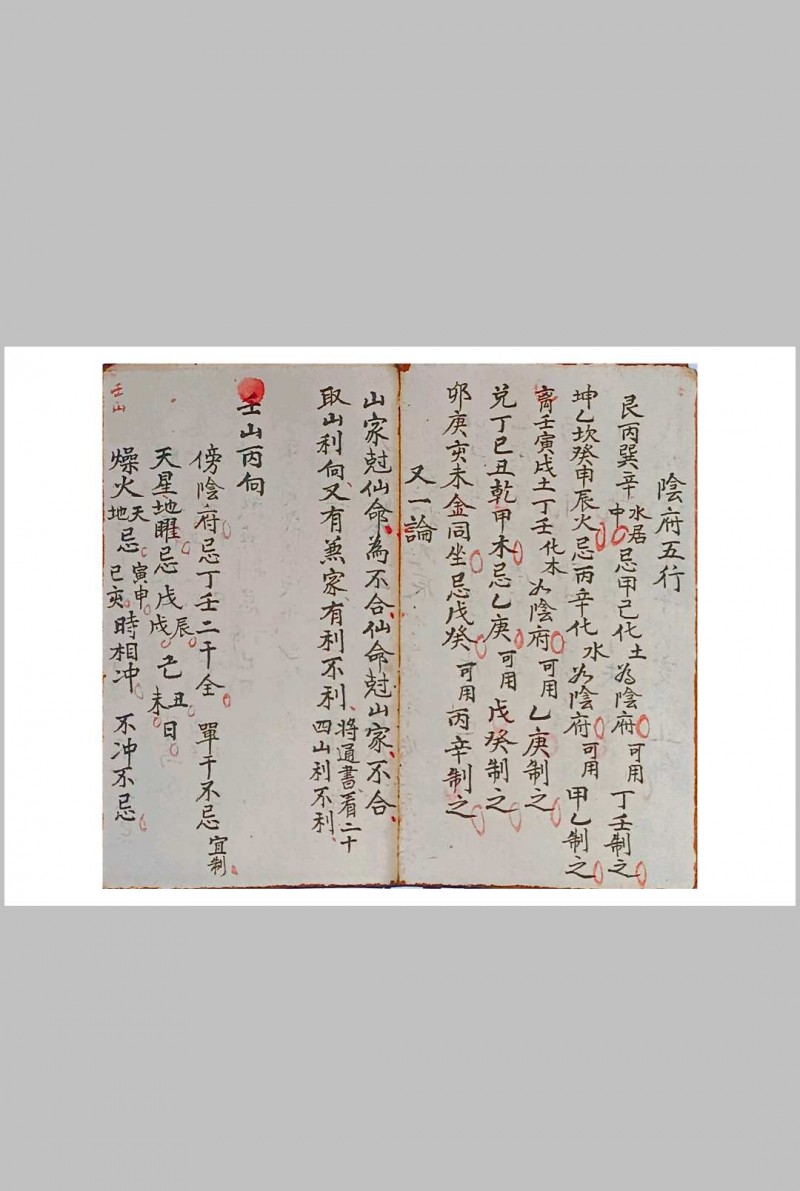 陰府五行
艮丙巽辛水居中忌甲己化土為陰府可用丁壬制之
坤乙坎癸申辰火忌丙辛化水為陰府可用甲乙制之
离壬寅戌土丁壬化木為陰府可用乙庚制之
兑丁巳丑乾甲木忌乙庚可用戊癸制之
卯庚亥未金同坐忌戊癸可用丙辛制之
又一論
山家尅仙命為不合仙命尅山家不合
取山利向又有兼家有利不利將通書看二十四山利不利
壬山丙向
傍陰府忌丁壬二干全單干不忌宜制
天星地曜忌戊辰戌己丑未日
燥火天地忌寅申巳亥時相冲不冲不忌
壬山